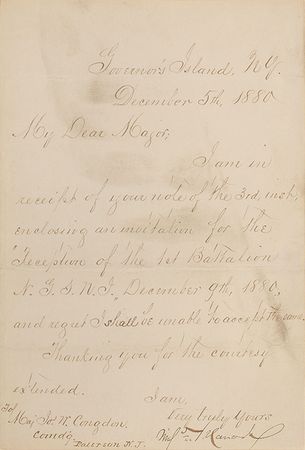 Governor's Island, N.Y.
December 5th, 1880
My Dear Major,
I am in
receipt of your note of the 3rd, inst,
enclosing an invitation for the
"reception of the 1st Battalion
N.G.S.N.J., December 9th, 1880,
and regret I shall be unable to accept the same.
Thanking you for the courtesy
extended.
I am,
Very truly Yours
To/
Maj Jos. W. Congdon.
Comd'g
Paterson N.J.
Hancock